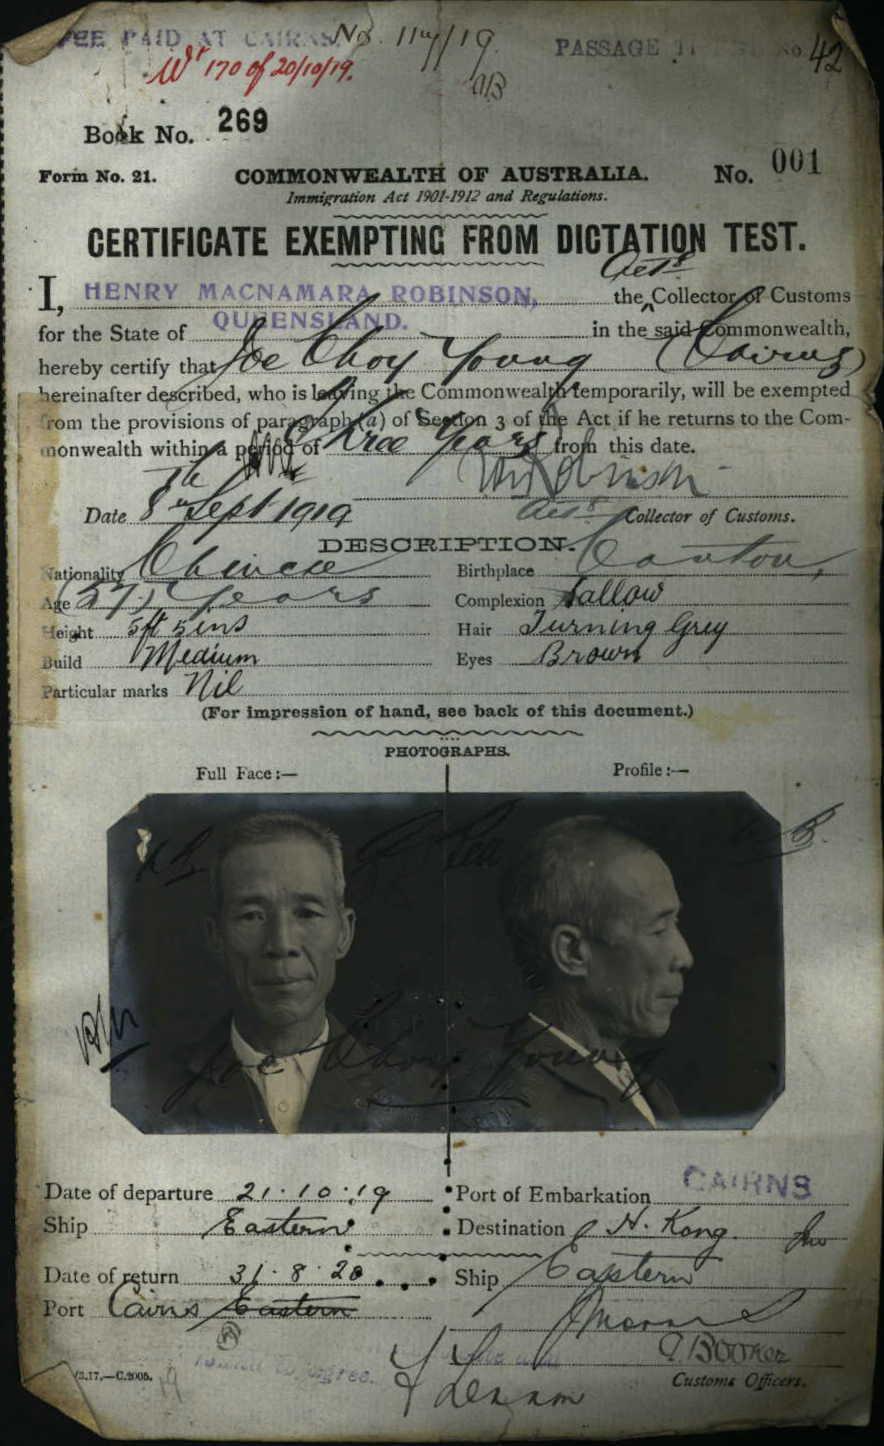 FEE PAID AT CAIRNS No. 117/19. PASSAGE No 42
Wt 170 of 20/10/19.
Book No. 269
Form No. 21. COMMONWEALTH OF AUSTRALIA. No. 001
Immigration Act 1901-1912 and Regulations.
CERTIFICATE EXEMPTING FROM DICTATION TEST.
Actg
I, HENRY MACNAMARA ROBINSON, the Collector of Customs
for the State of QUEENSLAND. in the said Commonwealth,
hereby certify that Joe Choy Young (Cairns)
hereinafter described, who is leaving the Commonwealth temporarily, will be exempted
from the provisions of paragraph (a) of Section 3 of the Act if he returns to the Com-
monwealth within a period of Three Years from this date.
Date 8th Sept 1919 Actg Collector of Customs.
DESCRIPTION.
Nationality Chinese Birthplace Canton
Age (57) Years Complexion Sallow
Height 5ft 5ins Hair Turning Grey
Build Medium Eyes Brown
Particular marks Nil
(For impression of hand, see back of this document.)
PHOTOGRAPHS.
Full Face:— Profile:—
Joe Choy Young
Date of departure 21.10.19 Port of Embarkation CAIRNS
Ship Eastern Destination H. Kong.
Date of return 31.8.20 Ship Eastern
Port Cairns Eastern
Customs Officers.